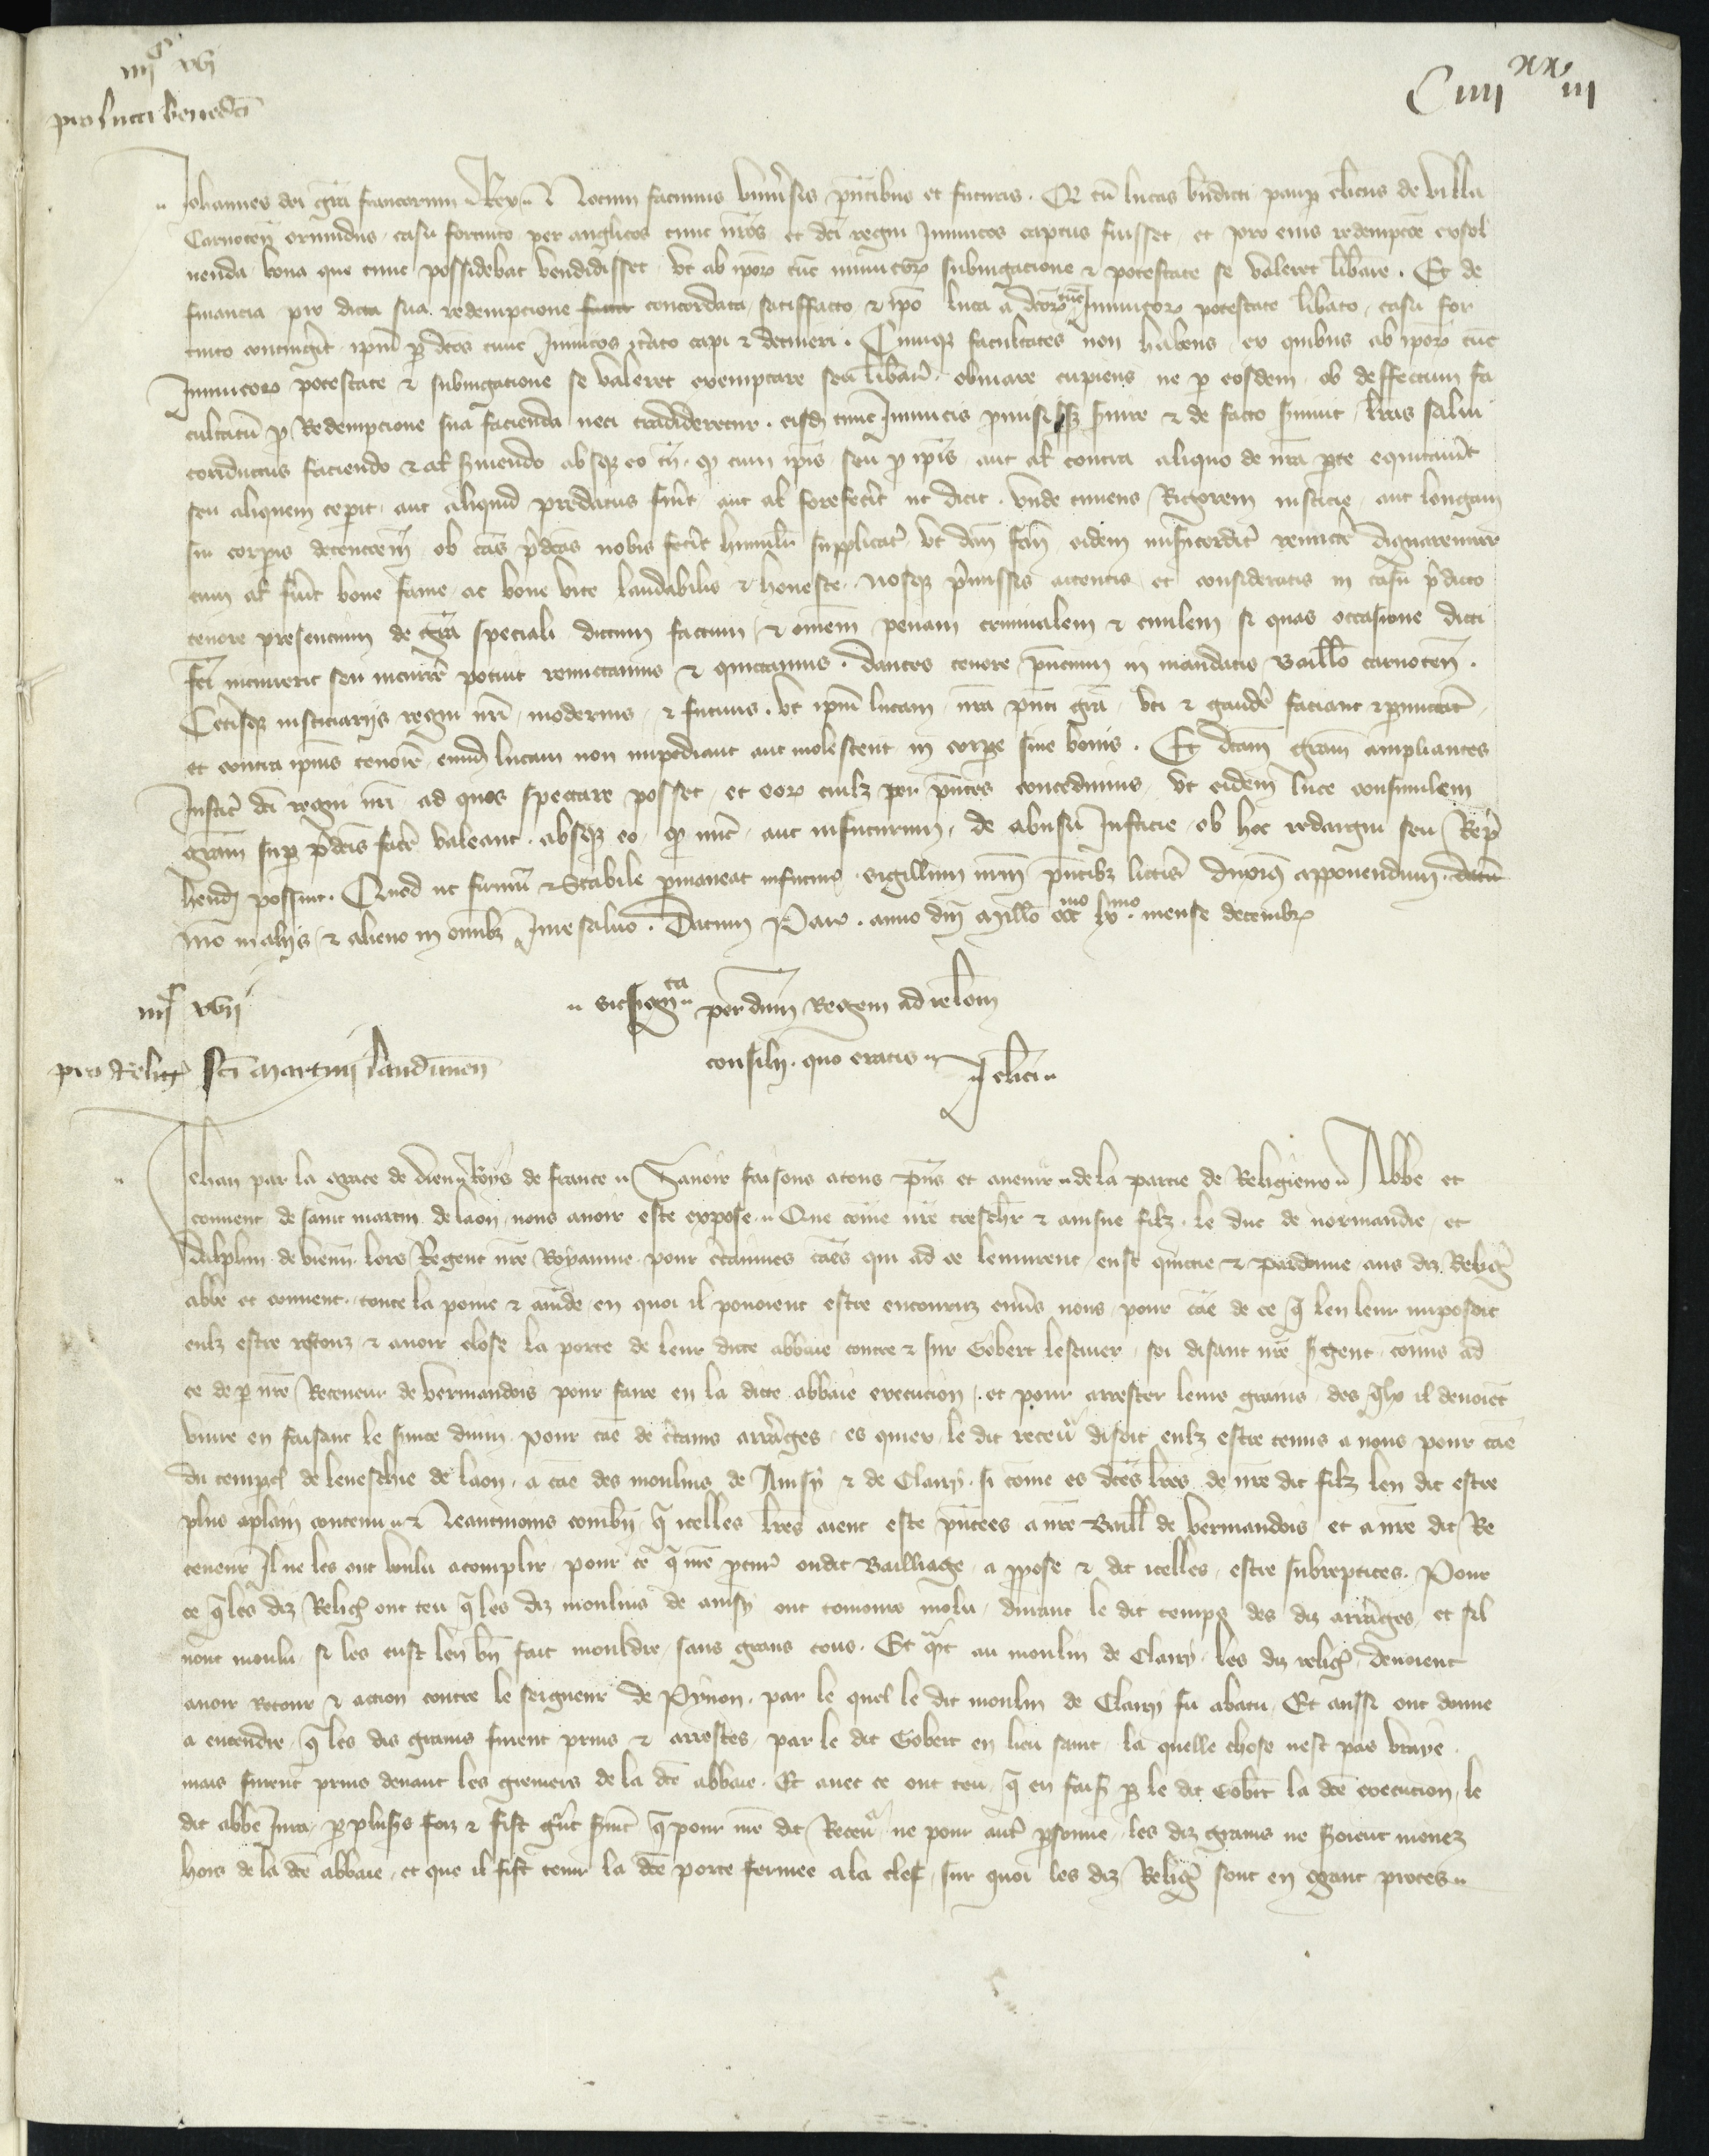 iiijͨ xvj
pro luca benedicti
C iiij xx iij
Johannes dei gra francorum Rex Notum facimus universis pntibus et futuris. Qz cu lucas bndicti paup clicus de villa
Carnoten oriundus casu fortuito per anglicos tunc nros et dci regni Inimicos captus fuisset et pro eius redempcoe exsol
venda bona que tunc possidebat vendidisset vt ab ipor tuc inimicor subiugacione & potestate se valeret librare. Et de
financia pro dicta sua redempcione facta concordata satisffacto & ipo luca a dcor tuc Inimicor potestate libato casu for
tuito contingerit ipm p dcos tunc Inimicos itato capi & detineri. Cumqz facultates non habens ex quibus ab ipor tuc
Inimicor potestate & subiugacione se valeret exemptare seu librare obviare cupiens ne p eosdem ob deffectum fa
cultatu p Redempcione sua facienda neci tradideretur. eisd tunc Inimicis pmisisset s'vire & de facto s'vivit lras salvi
conductus faciendo & al s'viendo absqz eo tn qz cum ipis seu p ipis aut al contra aliquo de nra pte equitaverit
seu aliquem ceperit aut aliquid predatus fuerit aut al forefecit ut dicit. vnde timens Rigorem iusticie aut longam
sui corporis detencoem ob cas pdcas nobis fecit humilr supplicari vt dcm fcm eidem misericorditer remittere dignaremur
cum al fuerit bone fame ac bone vite laudabilis & honeste. Nosqz pmissis attentis et consideratis in casu pdicto
tenore presencium de gra speciali dictum factum & omem penam criminalem & civilem si quas occasione dicti
fci incurrerit seu incurrere potuit remittimus & quittamus. dantes tenore pncium in mandatis Baillo carnoten.
Ceterisqz iusticiariis regni nri modernis & futuris. vt ipm lucam nra pnti gra vti & gaudere faciant & pmittant
et contra ipius tenore eund lucam non impediant aut molestent in corpe sive bonis. Et dcam gram ampliantes
Justic dci regni nri ad quos spectare posset et eor cuilz per pntes concedimus vt eidem luce consimilem
gram sup pdcis facere valeant. absqz eo qz nunc aut infuturum de abusu Justicie ob hoc redargui seu Repre
hend possint. Quod ut firmu & stabile pmaneat infuturu sigillum nrm pntibz litteris duximus apponendum. datu
nro in aliis & alieno in omnibz Jure salvo. Datum Paris. anno dni millo ccc mo lx mo. mense decembr
sic signata per dnm Regem ad relom
consilii. quo eratis
J clici
iiijͨ xvij
pro Religz sci martini laudunen
Jehan par la grace de dieu Roys de france Savoir faisons a tous pns et avenir de la partie de Religieux Abbe et
convent de saint martin de laon nous avoir este expose Que come nre treschr & ainsne filz le duc de normandie et
dalphin de vienn lors Regent nre Royaume pour ctainnes caes qui ad ce lemurent eust quittie & pardonne aus diz Religx
abbe et convent toute la poine & amde en quoi il povoient estre encouruz envers nous pour cae de ce q len leur imposoit
eulz estre rescouz & avoir close la porte de leur dicte abbaie contre & sur Gobert lescuier soi disant nre sgent comis ad
ce de p nre Receveur de vermandois pour faire en la dicte abbaie execucion et pour arrester leurs grains des qlx il devoiet
vivre en faisant le svice divin pour cae de ctains arrages es quiex le dit receu disoit eulz estre tenus a nous pour cae
du tempel de leveschie de laon a cae des moulins de Anisy & de Clairy si come es dces lres de nre dit filz len dit estre
plus aplain contenu & Neantmoins combn q icelles lres aient este pntees a nre Baill de vermandois et a nre dit Re
ceveur Il ne les ont voulu acomplir pour ce q nre pcur oudit Bailliage a ppose & dit icelles estre subreptices. Pour
ce qles diz Religx ont teu q les diz moulins de anisy ont tousiours molu durant le dit temps des diz arrages et sil
neut moulu si les eust len bn fait mouldre sans grans cous. Et qnt au moulin de Clairy les diz religx devoient
avoir Retour & action contre le seigneur de Pynon par le quel le dit moulin de Clairy fu abatu Et aussi ont donne
a entendre q les dis grains furent prins & arrestes par le dit Gobert en lieu saint la quelle chose nest pas vraye
mais furent prins devant les greniers de la dce abbaie. Et avec ce ont teu q en faist p le dit Gobt la dce execucion le
dit abbe Jura p plusrs foiz & fist grant srmt q pour nre dit Receu ne pour autr psonne les diz grains ne sroient menez
hors de la dce abbaie et que il fist tenir la dce porte fermee a la clef sur quoi les diz Religx sont en grant proces